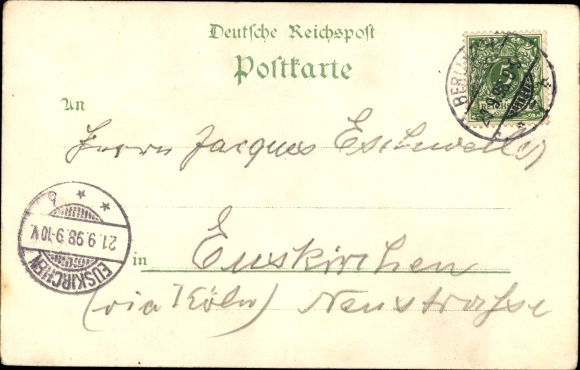 Deutsche Reichspost
Postkarte
An
Herrn Jacques Eschweiler
in Euskirchen
(via Köln) Neustraße
BERLIN
REICHSPOST
EUSKIRCHEN
21.9.98.9-10V.
* * b